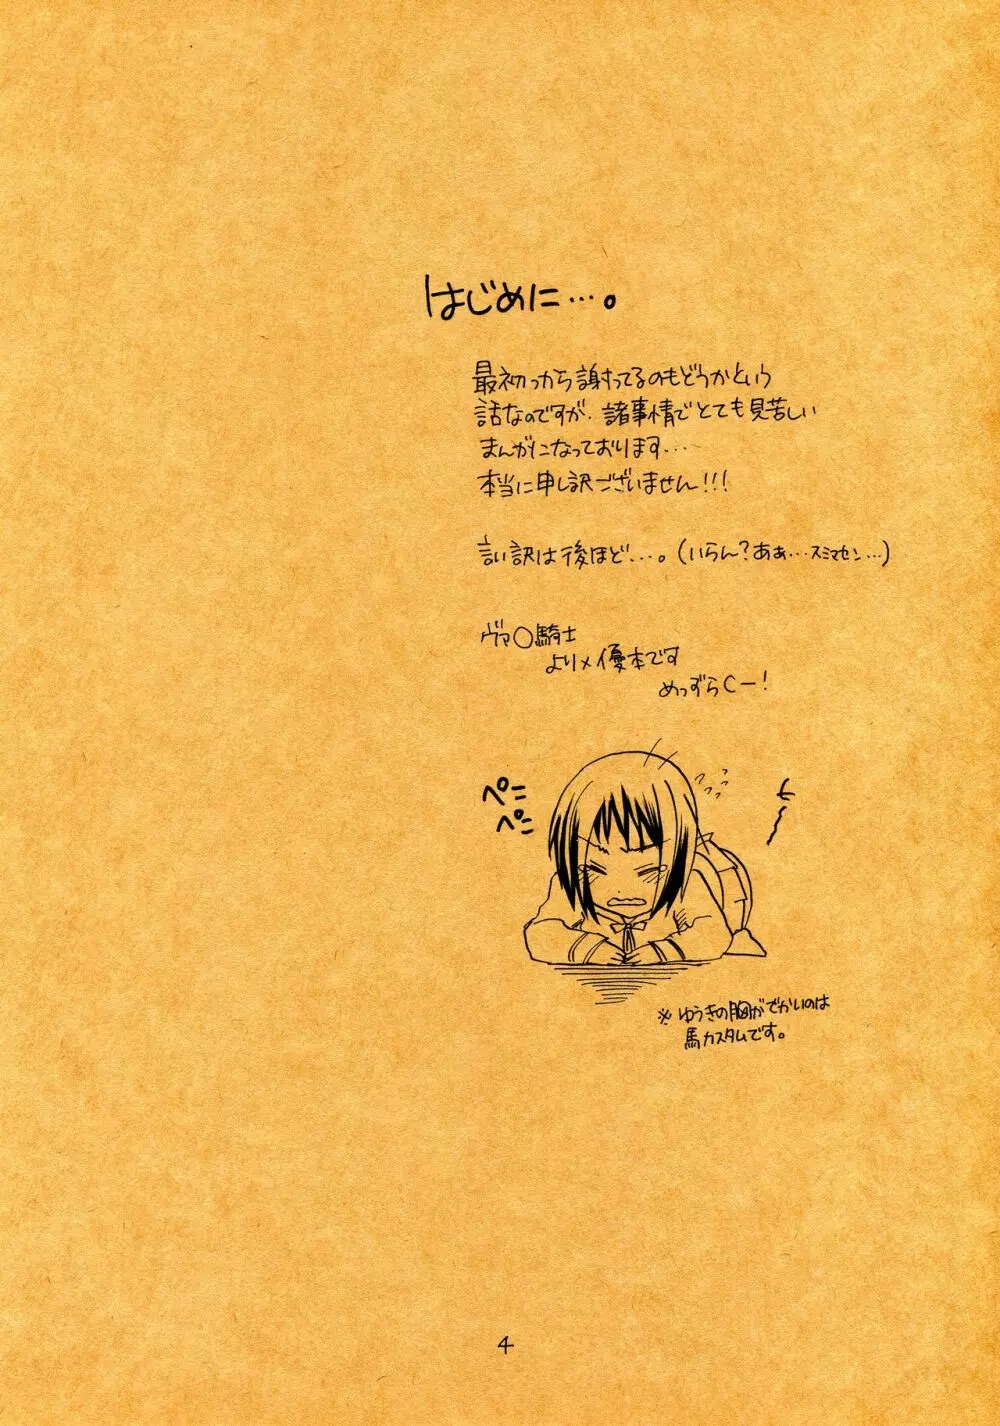 はじめに…。
最初っから謝ってるのもどうかという
話なのですが、諸事情でとても見苦しい
まんがになっております‥‥
本当に申し訳ございません!!!
言い訳は後ほど…。(いらん?ああ…スミマセン…)
ヴァ〇騎士
より×優本です
めっずらCー!
ペこ
ペこ
※ゆうきの胸がでかいのは
馬カスタムです。
4